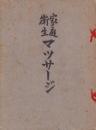 家庭
衛生
マツサージ